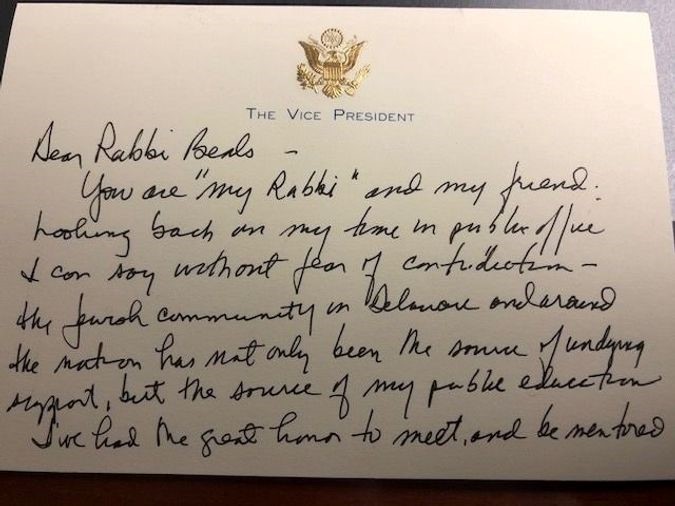 THE VICE PRESIDENT
Dear Rabbi Beals -
You are "my Rabbi" and my friend.
Looking back on my time in public office
I can say without fear of contradiction -
the Jewish community in Delaware and around
the nation has not only been the source of undying
support, but the source of my public education
I've had the great honor to meet, and be mentored